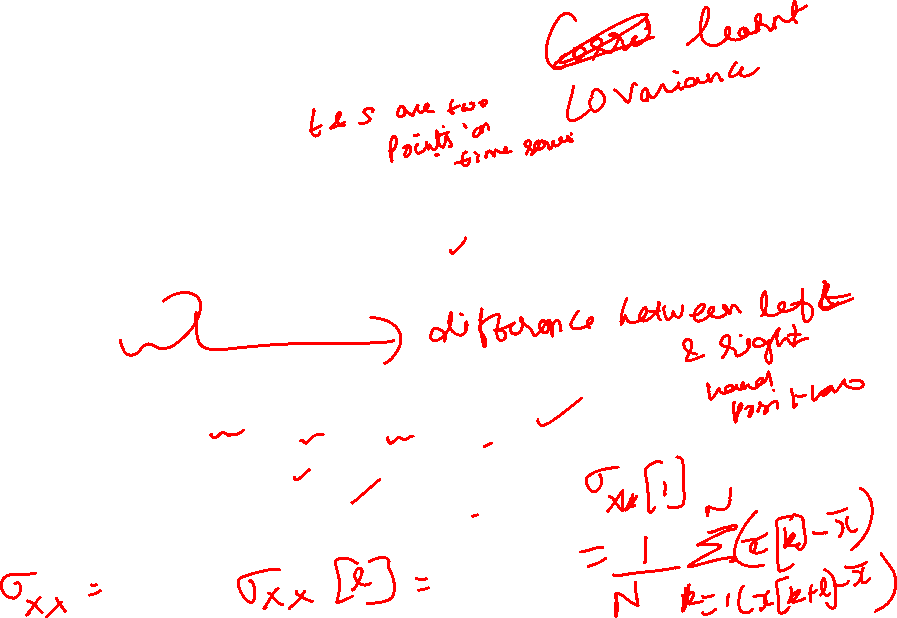 learnt
covariance
t & s are two
points on
time series
difference between left
& right
hand
positions
σxx[1]
σxx = σxx[l] = = 1/N Σ_{k=1}^{N} (x[k] - x̄)(x[k+l] - x̄)